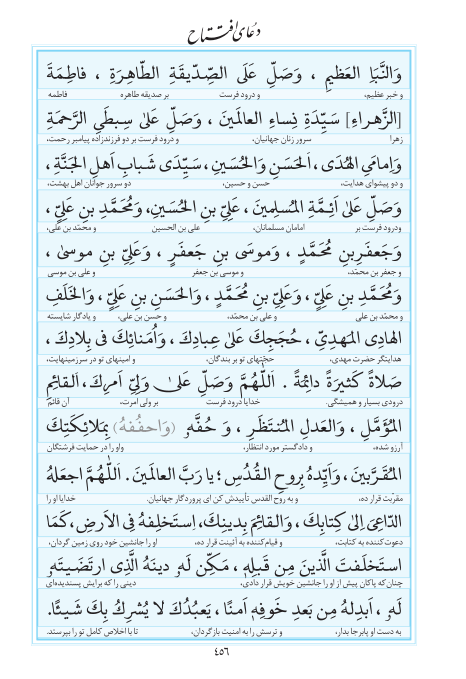 دعای افتتاح
وَالنَّبَإِ العَظیمِ ، وَصَلِّ عَلَی الصِّدّیقَةِ الطّاهِرَةِ ، فاطِمَةَ
و خبر عظیم، و درود فرست بر صدیقه طاهره فاطمه
[الزَّهراءِ] سَیِّدَةِ نِساءِ العالَمینَ ، وَصَلِّ عَلیٰ سِبطَیِ الرَّحمَةِ
زهرا سرور زنان جهانیان، و درود فرست بر دو فرزندزاده پیامبر رحمت،
وَإمامَیِ الهُدَی ، اَلحَسَنِ وَالحُسَینِ ، سَیِّدَی شَبابِ اَهلِ الجَنَّةِ ،
و دو پیشوای هدایت، حسن و حسین، دو سرور جوانان اهل بهشت،
وَصَلِّ عَلیٰ اَئِمَّةِ المُسلِمینَ ، عَلِیِّ بنِ الحُسَینِ، وَمُحَمَّدِ بنِ عَلِیٍّ ،
ودرود فرست بر امامان مسلمانان، علی بن الحسین و محمّد بن علی،
وَجَعفَرِبنِ مُحَمَّدٍ ، وَموسَی بنِ جَعفَرٍ ، وَعَلِیِّ بنِ موسیٰ ،
و جعفر بن محمّد، و موسی بن جعفر و علی بن موسی
وَمُحَمَّدِ بنِ عَلِیٍّ ، وَعَلِیِّ بنِ مُحَمَّدٍ ، وَالحَسَنِ بنِ عَلِیٍّ ، وَالخَلَفِ
و محمّد بن علی و علی بن محمّد، و حسن بن علی، و یادگار شایسته
الهادِی المَهدِیِّ ، حُجَجِكَ عَلیٰ عِبادِكَ ، وَاُمَنائِكَ فی بِلادِكَ ،
هدایتگر حضرت مهدی، حجتهای تو بر بندگان، و امینهای تو در سرزمینهایت،
صَلاةً کَثیرَةً دائِمَةً . اَللّٰهُمَّ وَصَلِّ عَلیٰ وَلِیِّ اَمرِكَ ، اَلقائِمِ
درودی بسیار و همیشگی. خدایا درود فرست بر ولی امرت، آن قائم
المُؤَمَّلِ ، وَالعَدلِ المُنتَظَرِ ، وَ حُفَّهُ (وَاحفُفهُ) بِمَلائِکَتِكَ
آرزو شده، و دادگستر مورد انتظار، واو را در حمایت فرشتگان
المُقَرَّبینَ ، وَاَیِّدهُ بِروحِ القُدُسِ ؛ یا رَبَّ العالَمینَ . اَللّٰهُمَّ اجعَلهُ
مقرّبت قرار ده، و به روح القدس تأییدش کن ای پروردگار جهانیان. خدایا او را
الدّاعِیَ اِلیٰ کِتابِكَ ، وَالقائِمَ بِدینِكَ، اِستَخلِفهُ فِی الاَرضِ ، کَمَا
دعوت‌کننده به کتابت، و قیام‌کننده به آئینت قرار ده، او را جانشین خود روی زمین گردان،
استَخلَفتَ الَّذینَ مِن قَبلِهِ ، مَکِّن لَهُ دینَهُ الَّذِی ارتَضَیتَهُ
چنان‌که پاکان پیش از او را جانشین خویش قرار دادی، دینی را که برایش پسندیده‌ای
لَهُ ، اَبدِلهُ مِن بَعدِ خَوفِهِ اَمنًا ، یَعبُدُكَ لا یُشرِكُ بِكَ شَیئًا.
به دست او پابرجا بدار، و ترسش را به امنیت بازگردان، تا با اخلاص کامل تو را بپرستد.
٤٥٦